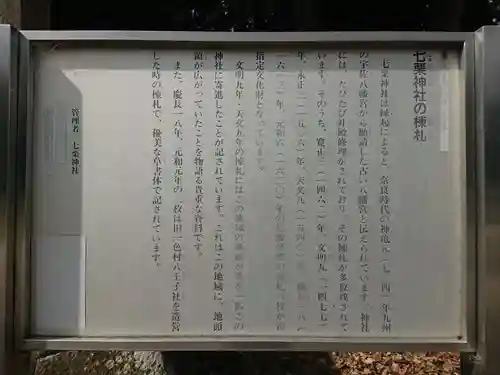 七栗神社の棟札
七栗神社は縁起によると、奈良時代の神亀元(七二四)年九州
の宇佐八幡宮から勧請した古い八幡宮と伝えられています。神社
には、たびたび社殿修理がされており、その棟札が多数残されて
います。そのうち、寛正三(一四六二)年、文明九(一四七七)
年、永正三(一五〇六)年、天文九(一五四〇)年、
指定文化財となっています。
文明九年・天文九年の棟札にはこの地域の
神社に寄進したことが記されています。これはこの地域に、地頭
領が広がっていたことを物語る貴重な資料です。
また、慶長一八年、元和元年の二枚は旧一色村八王子社を造営
した時の棟札で、優美な草書体で記されています。
管理者 七栗神社